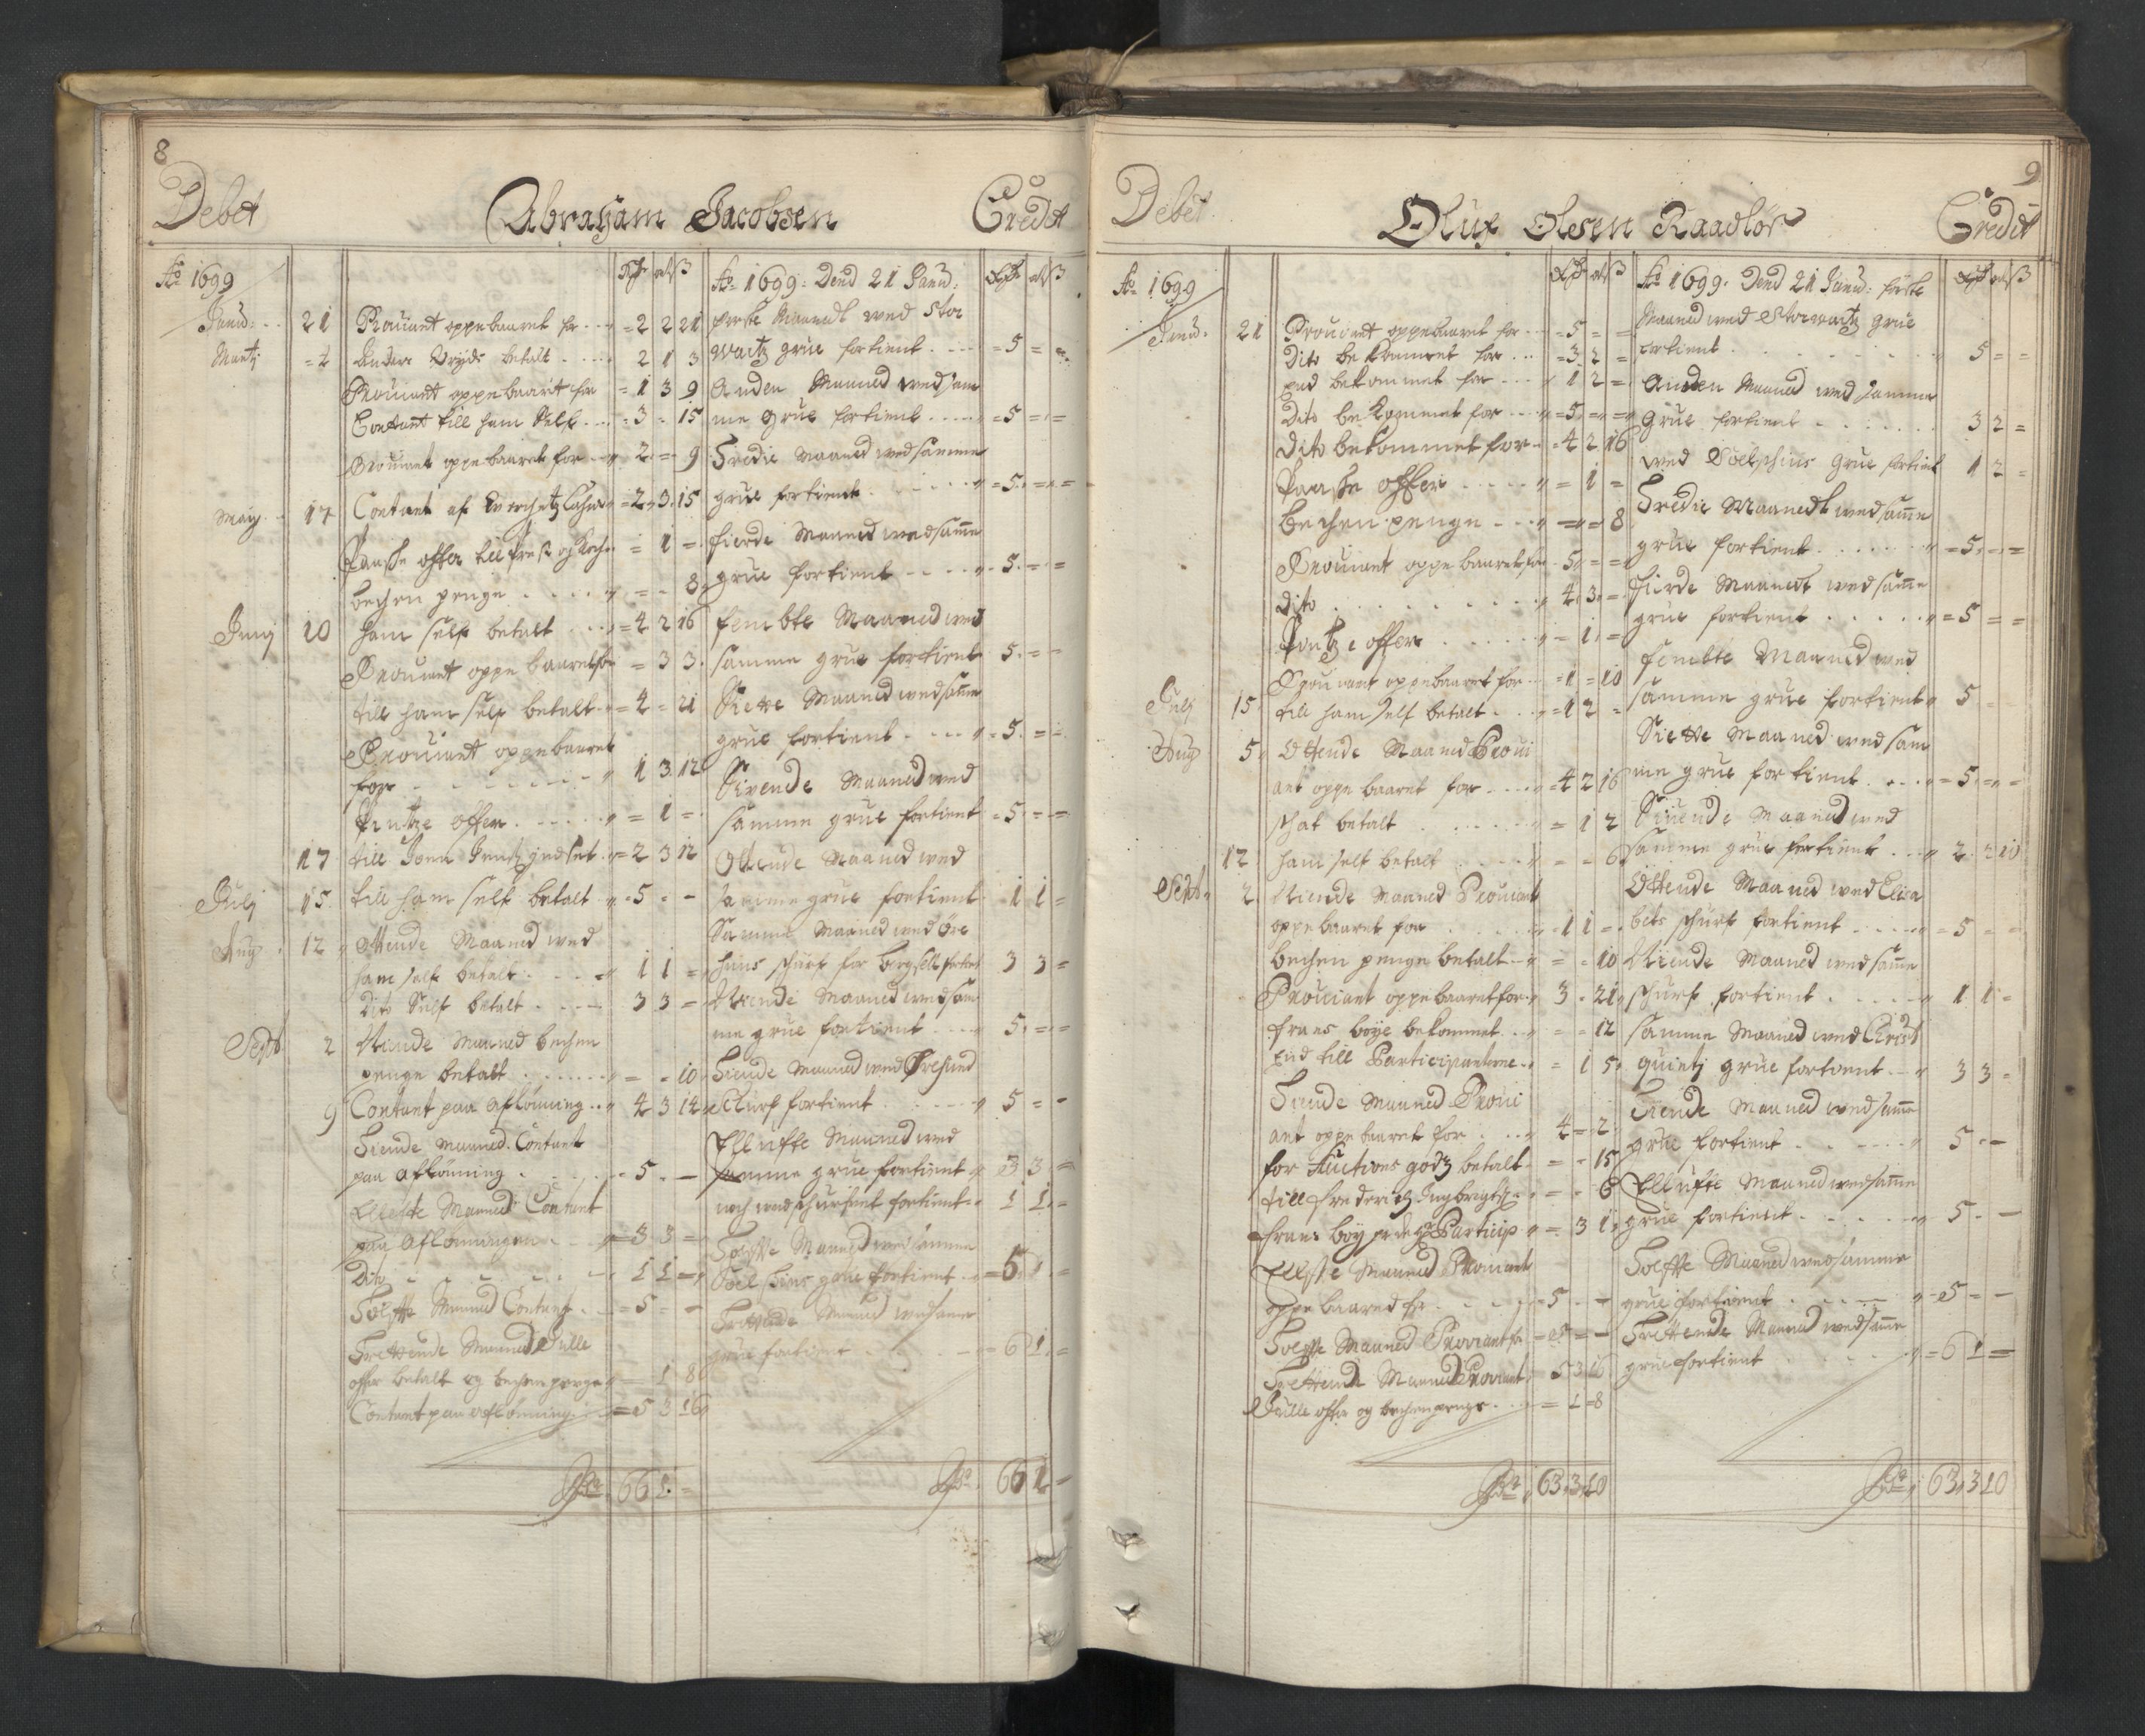 8
Debet Abraham Jacobsen Credit
Ao 1699
Janu: 21 Prouiant oppebaaret for = 2 2 21
Martij = 2 Anders betalt 2 1 3
Prouiant oppebaarit for = 1 3 9
Contant till ham Self = 3 - 15
Prouiant oppebaaret for 2 = 9
Maij 17 Contant af = 2 3 15
Paasche offer till Prest og = 1 =
bechen penge = - 8
Junij 10 ham self betalt = 4 2 16
Prouiant oppebaaret for = 3 3
till ham self betalt = 4 - 21
Prouiant oppebaaret
for 1 3 12
Pintze offer = 1 =
17 till = 2 3 12
Julij 15 till ham self betalt = 5 - -
Aug: 12 Ottende Maaned wed
ham self betalt 1 1 =
Dito Self betalt 3 3 =
Septb 2 Niende Maaned bechen
penge betalt = - 10
9 Contant paa aflönning 4 3 14
Tiende Maaned Contant
paa aflönning 5 - -
Ellefte Maaned Contant
paa aflönningen = 3 3 =
Dito 1 1 =
Tolffte Maaned Contant = 5 - -
Trettende Maaned Julle
offer betalt og bechenpenge = 1 8
Contant paa aflönning = 5 3 16
66 1 =
Ao 1699: Dend 21 Janu:
förste Maanedt wed Stor
Wartz grue fortient = 5 = =
Anden Maaned wed sam
me grue fortient = 5 = =
Tredie Maaned wed samme
grue fortient = 5 = =
fierde Maaned wed samme
grue fortient 5 = =
fembte Maaned wed
samme grue fortient 5 = -
Siette Maaned wed samme
grue fortient = 5 = =
Sivende Maaned wed
samme grue fortient = 5 = =
Ottende Maaned wed
samme grue fortient 1 1 =
Samme Maaned wed Öre
sunds schurf for fortient 3 3 =
Niende Maaned wed sam
me grue fortient 5 = =
Tiende Maaned wed Öresund
schurf fortient 5 = -
Ellufte Maaned wed
samme grue fortient 3 3 =
noch wed schurfuet fortient 1 1 =
Tolffte Maaned wed samme
grue fortient = 5 1 -
Trettende Maaned wed samme
grue fortient = 6 1 =
66 1 -
9
Debet Oluf Olesen Raadlös Credit
Ao 1699
Janu: 21 Prouiant oppebaaret for = 5 = =
Dito bekommet for = 3 2 =
end bekommet for 1 2 =
Dito bekommet for = 5 = =
Dito bekommet for = 4 2 16
Paasche offer = 1 =
bechen penge = = 8
Prouiant oppebaaret for 5 = =
dito 4 3 =
Pintze offer = 1 =
Prouiant oppebaaret for = 1 = 10
Julij 15 till ham self betalt = 1 2 =
Aug 5 Ottende Maaned Proui
ant oppebaaret for = 4 2 16
schat betalt = 1 2
12 ham self betalt = - 6
Septb 2 Niende Maaned Prouiant
oppebaaret for 1 1 =
bechen penge betalt = - 10
Prouiant oppebaaret for 3 - 21
frans böye bekommet = - 12
End till Participanterne = 1 5
Tiende Maaned Proui
ant oppebaaret for 4 = 2
for Auctions godz betalt = - 15
till frederich = - 6
frans böy Particip = 3 1
Ellefte Maaned Prouiant
oppebaared for = 5 - -
Tolffte Maaned Prouiant for = 5 = -
Trettende Maaned Prouiant = 5 3 16
Julle offer og bechenpenge = 1 = 8
63 3 10
Ao 1699. Dend 21 Janu: förste
Maaned wed Storwartz Grue
fortient 5 = -
Anden Maaned wed samme
Grue fortient 3 2 =
wed Grue fortient 1 2 -
Tredie Maanedt wed samme
grue fortient = 5 = =
fierde Maanedt wed samme
grue fortient = 5 = =
fembte Maaned wed
samme grue fortient 5
Siette Maaned wed sam
me grue fortient = 5 = =
Siuende Maaned wed
samme grue fortient 2 2 10
Ottende Maaned wed Elisa
bets schurf fortient = 5 = =
Niende Maaned wed samme
schurf fortient 1 1 -
samme Maaned wed Christ
quintj grue fortient 3 3 -
Tiende Maaned wed samme
grue fortient 5 - -
Ellufte Maaned wed samme
grue fortient 5 - -
Tolffte Maaned wed samme
grue fortient = 5 = -
Trettende Maaned wed samme
grue fortient = 6 1 =
63 3 10